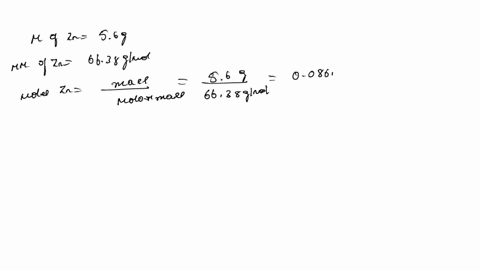 M of Zn = 5.6g
MM of Zn = 66.38 g/mol
moles Zn = mass / molar mass = 5.6 g / 66.38 g/mol = 0.086.